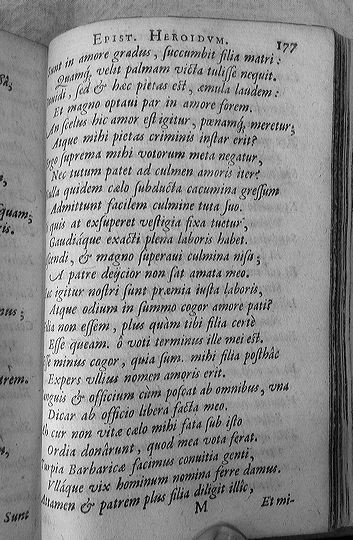 EPIST. HEROIDVM. 177
Sunt in amore gradus, succumbit filia matri:
Quamq́; velit palmam victa tulisse nequit.
sed & hæc pietas est, æmula laudem:
Et magno optaui par in amore forem.
An scelus hic amor est igitur, pœnamq́; meretur;
Atque mihi pietas criminis instar erit?
suprema mihi votorum meta negatur,
Nec tutum patet ad culmen amoris iter?
quidem cælo subducta cacumina gressum
Admittunt facilem culmine tuta suo.
quis at exsuperet vestigia fixa tuetur,
Gaudiáque exacti plena laboris habet.
& magno superaui culmina nisu;
A patre deijcior non sat amata meo.
igitur nostri sunt præmia iusta laboris,
Atque odium in summo cogor amore pati?
non essem, plus quàm tibi filia certè
Esse queam. ô voti terminus ille mei est.
minus cogor, quia sum. mihi filia posthàc
Expers vllius nomen amoris erit.
& officium cùm poscat ab omnibus, vna
Dicar ab officio libera facta meo.
cur non vitæ cælo mihi fata sub isto
Ordia donârunt, quod mea vota ferat.
Turpia Barbaricæ facimus conuitia genti,
Vlláque vix hominum nomina ferre damus.
Attamen & patrem plus filia diligit illîc,
M Et mi-
Sunt